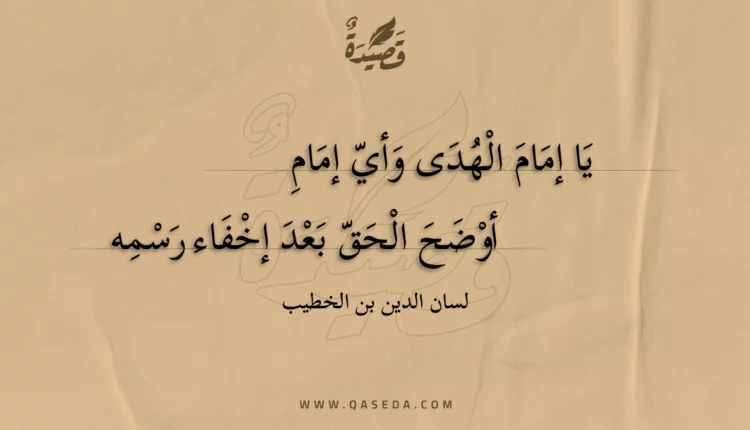 قَصِيْدَةٌ
يَا إمَامَ الْهُدَى وَأيّ إمَامِ
أوْضَحَ الْحَقّ بَعْدَ إخْفَاء رَسْمِه
لسان الدين بن الخطيب
WWW.QASEDA.COM